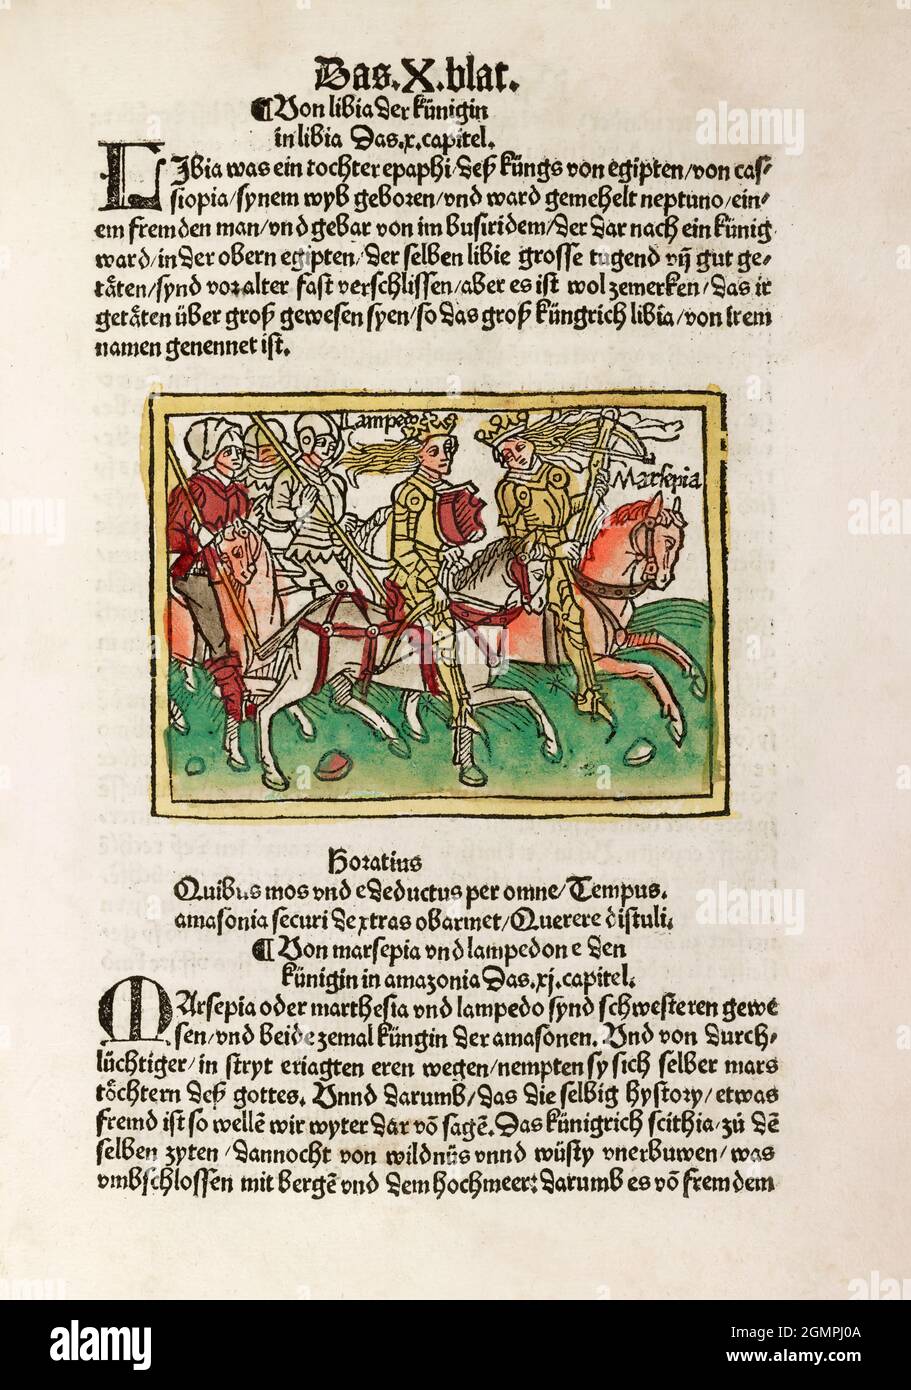 Das.X.blat.
¶Von libia der künigin
in libia Das.x.capitel.
LIbia was ein tochter epaphi/deß küngs von egipten/von cas⸗
siopia/synem wyb geboren/vnd ward gemehelt neptuno/ein⸗
em fremden man/vnd gebar von im busiridem/der dar nach ein künig
ward/in der obern egipten/der selben libie grosse tugend vñ gut ge⸗
täten/synd vor alter fast verschlissen/aber es ist wol zemerken/das ir
getäten über groß gewesen syen/so das groß küngrich libia/von irem
namen genennet ist.
Lampedo
Marsepia
Horatius
Quibus mos vnd e deductus per omne/Tempus.
amasonia securi dextras obarmet/Querere distuli.
¶Von marsepia vnd lampedone den
künigin in amazonia Das.xj.capitel.
MArsepia oder marthesia vnd lampedo synd schwesteren gewe
sen/vnd beide zemal küngin der amasonen. Vnd von durch⸗
lüchtiger/in stryt eriagten eren wegen/nempten sy sich selber mars
töchtern deß gottes. Vnnd darumb/das die selbig hystory/etwas
fremd ist so wellē wir wyter dar vō sagē. Das künigrich scithia/zů dē
selben zyten/dannocht von wildnüs vnnd wüsty vnerbuwen/was
vmbschlossen mit bergē vnd dem hochmeer: darumb es vō fremdem
alamy
Image ID: 2GMPJ0A
www.alamy.com